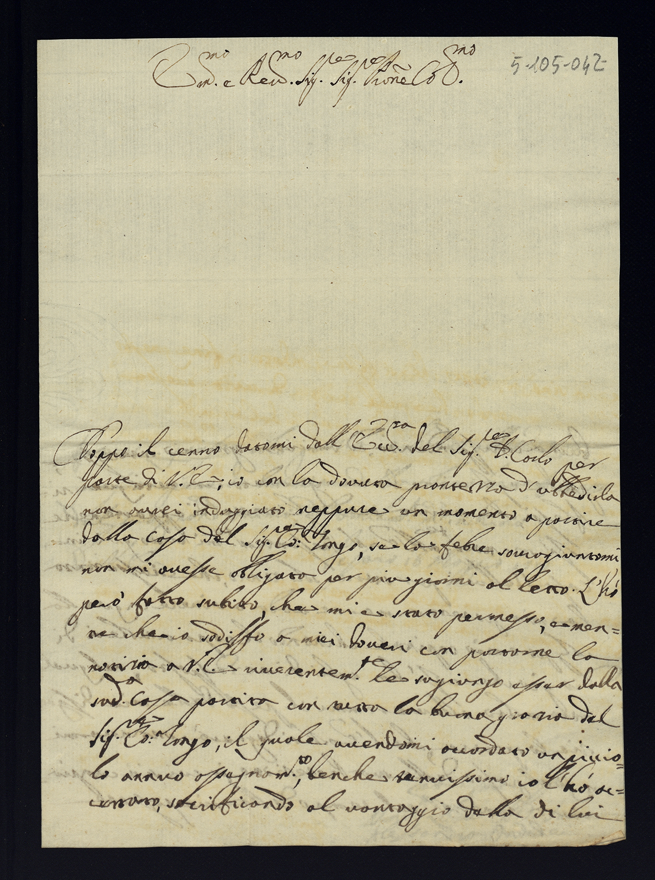 Em.mo e Rev.mo Sig.r Sig.r P̃rone Col.mo
5-105-042
Doppo il cenno datomi dall' Ecc.za del Sig.r D. Carlo per
parte di V. E., io con la dovuta prontezza d'ubbedirla
non averei induggiato neppure un momento a partire
dalla casa del Sig.r Co: Zongo, se la febre sovragiuntami
non mi avesse obligato per più giorni al letto. L'hò
però fatto subito, che mi è stato permesso, e men=
tre che io sodisfo a miei doveri con portarne la
notizia a V. E. riverentem.te le sogiongo esser dalla
sud.a Casa partita con tutta la buona grazia del
Sig.r Co: Zongo, il quale avendomi accordato un picio=
lo annuo assegnam.to, benche tenuissimo io l'hò ac=
cettato, sacrificando al vantaggio della di lui